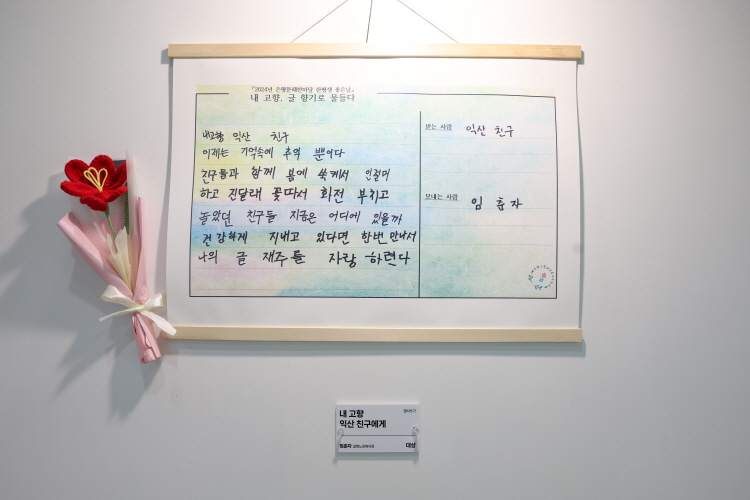 『2024년 은평문해한마당 한평생 좋은날』
내 고향, 글 향기로 물들다
내고향 익산 친구
이제는 기억속에 추억 뿐이다
친구들과 함께 봄에 쑥케서 인절미
하고 진달래 꽃따서 화전 부치고
놀았던 친구들 지금은 어디에 있을까
건강하게 지내고 있다면 한번 만나서
나의 글 재주를 자랑 하련다
받는 사람 익산 친구
보내는 사람 임춘자
내 고향
익산 친구에게
임춘자
대상